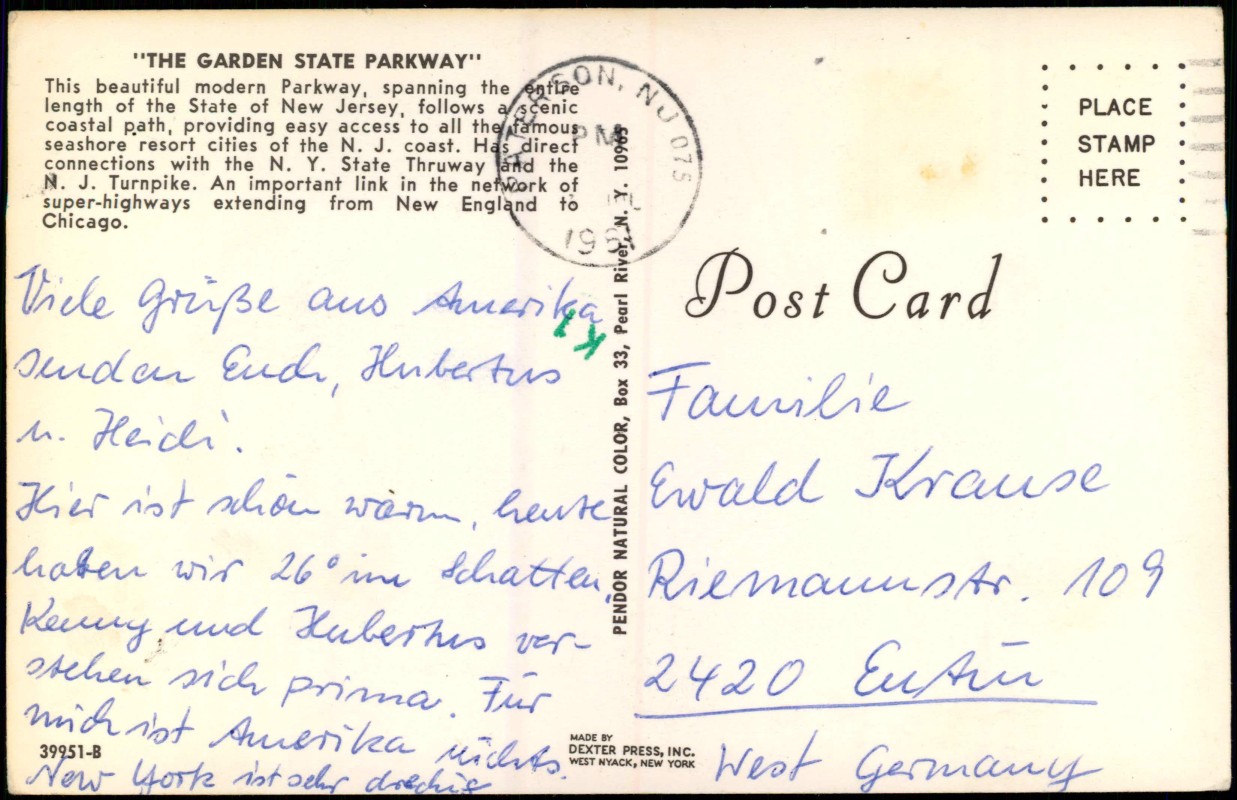 "THE GARDEN STATE PARKWAY"
This beautiful modern Parkway, spanning the entire
length of the State of New Jersey, follows a scenic
coastal path, providing easy access to all the famous
seashore resort cities of the N. J. coast. Has direct
connections with the N. Y. State Thruway and the
N. J. Turnpike. An important link in the network of
super-highways extending from New England to
Chicago.
Viele Grüße aus Amerika
senden Euch, Hubertus
u. Heidi.
Hier ist schön warm, heute
haben wir 26° im Schatten.
Kenny und Hubertus ver-
stehen sich prima. Für
mich ist Amerika nichts.
New York ist sehr dreckig
39951-B
K1
PATERSON, NJ 075
PM
198
PENDOR NATURAL COLOR, Box 33, Pearl River, N. Y. 10965
MADE BY
DEXTER PRESS, INC.
WEST NYACK, NEW YORK
PLACE
STAMP
HERE
Post Card
Familie
Ewald Krause
Riemannstr. 109
2420 Eutin
West Germany